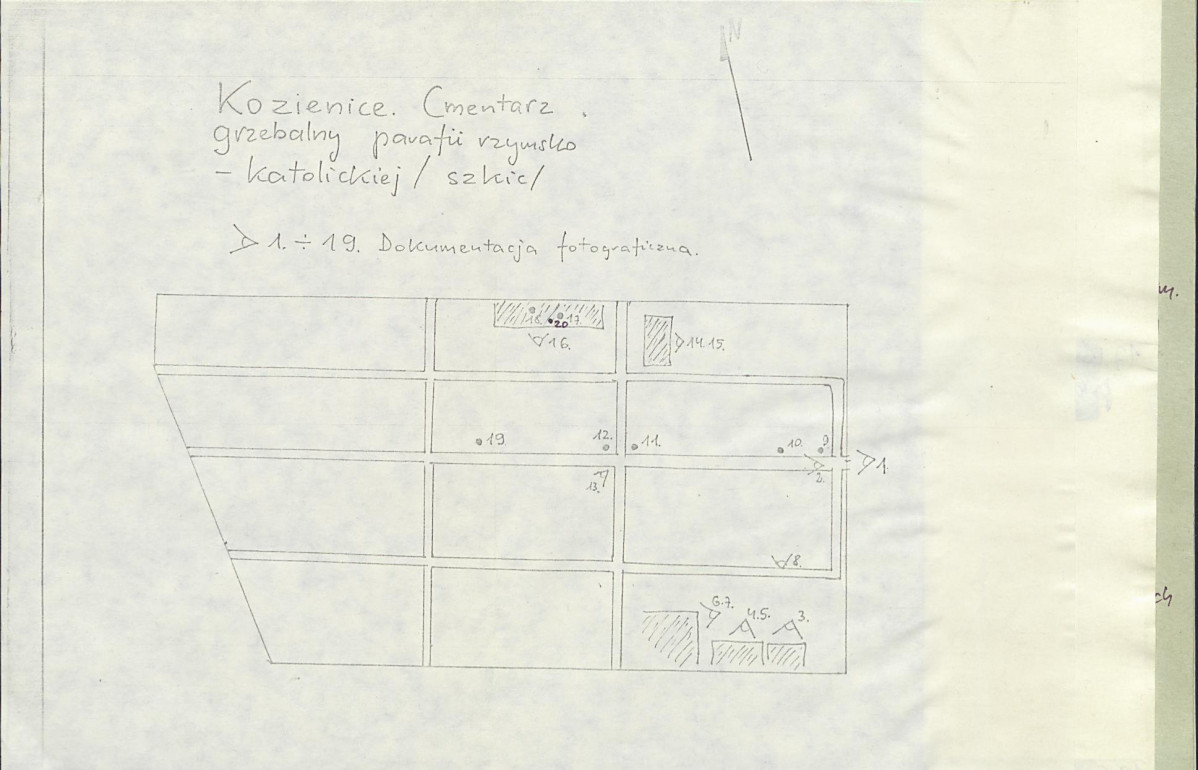 N
Kozienice. Cmentarz.
grzebalny parafii rzymsko
- katolickiej / szkic/
1. ÷ 19. Dokumentacja fotograficzna.
18. 17.
20
16.
14.15.
19
12.
11.
10.
9.
1.
2.
13.
8.
6.7.
4.5.
3.
m.
ch